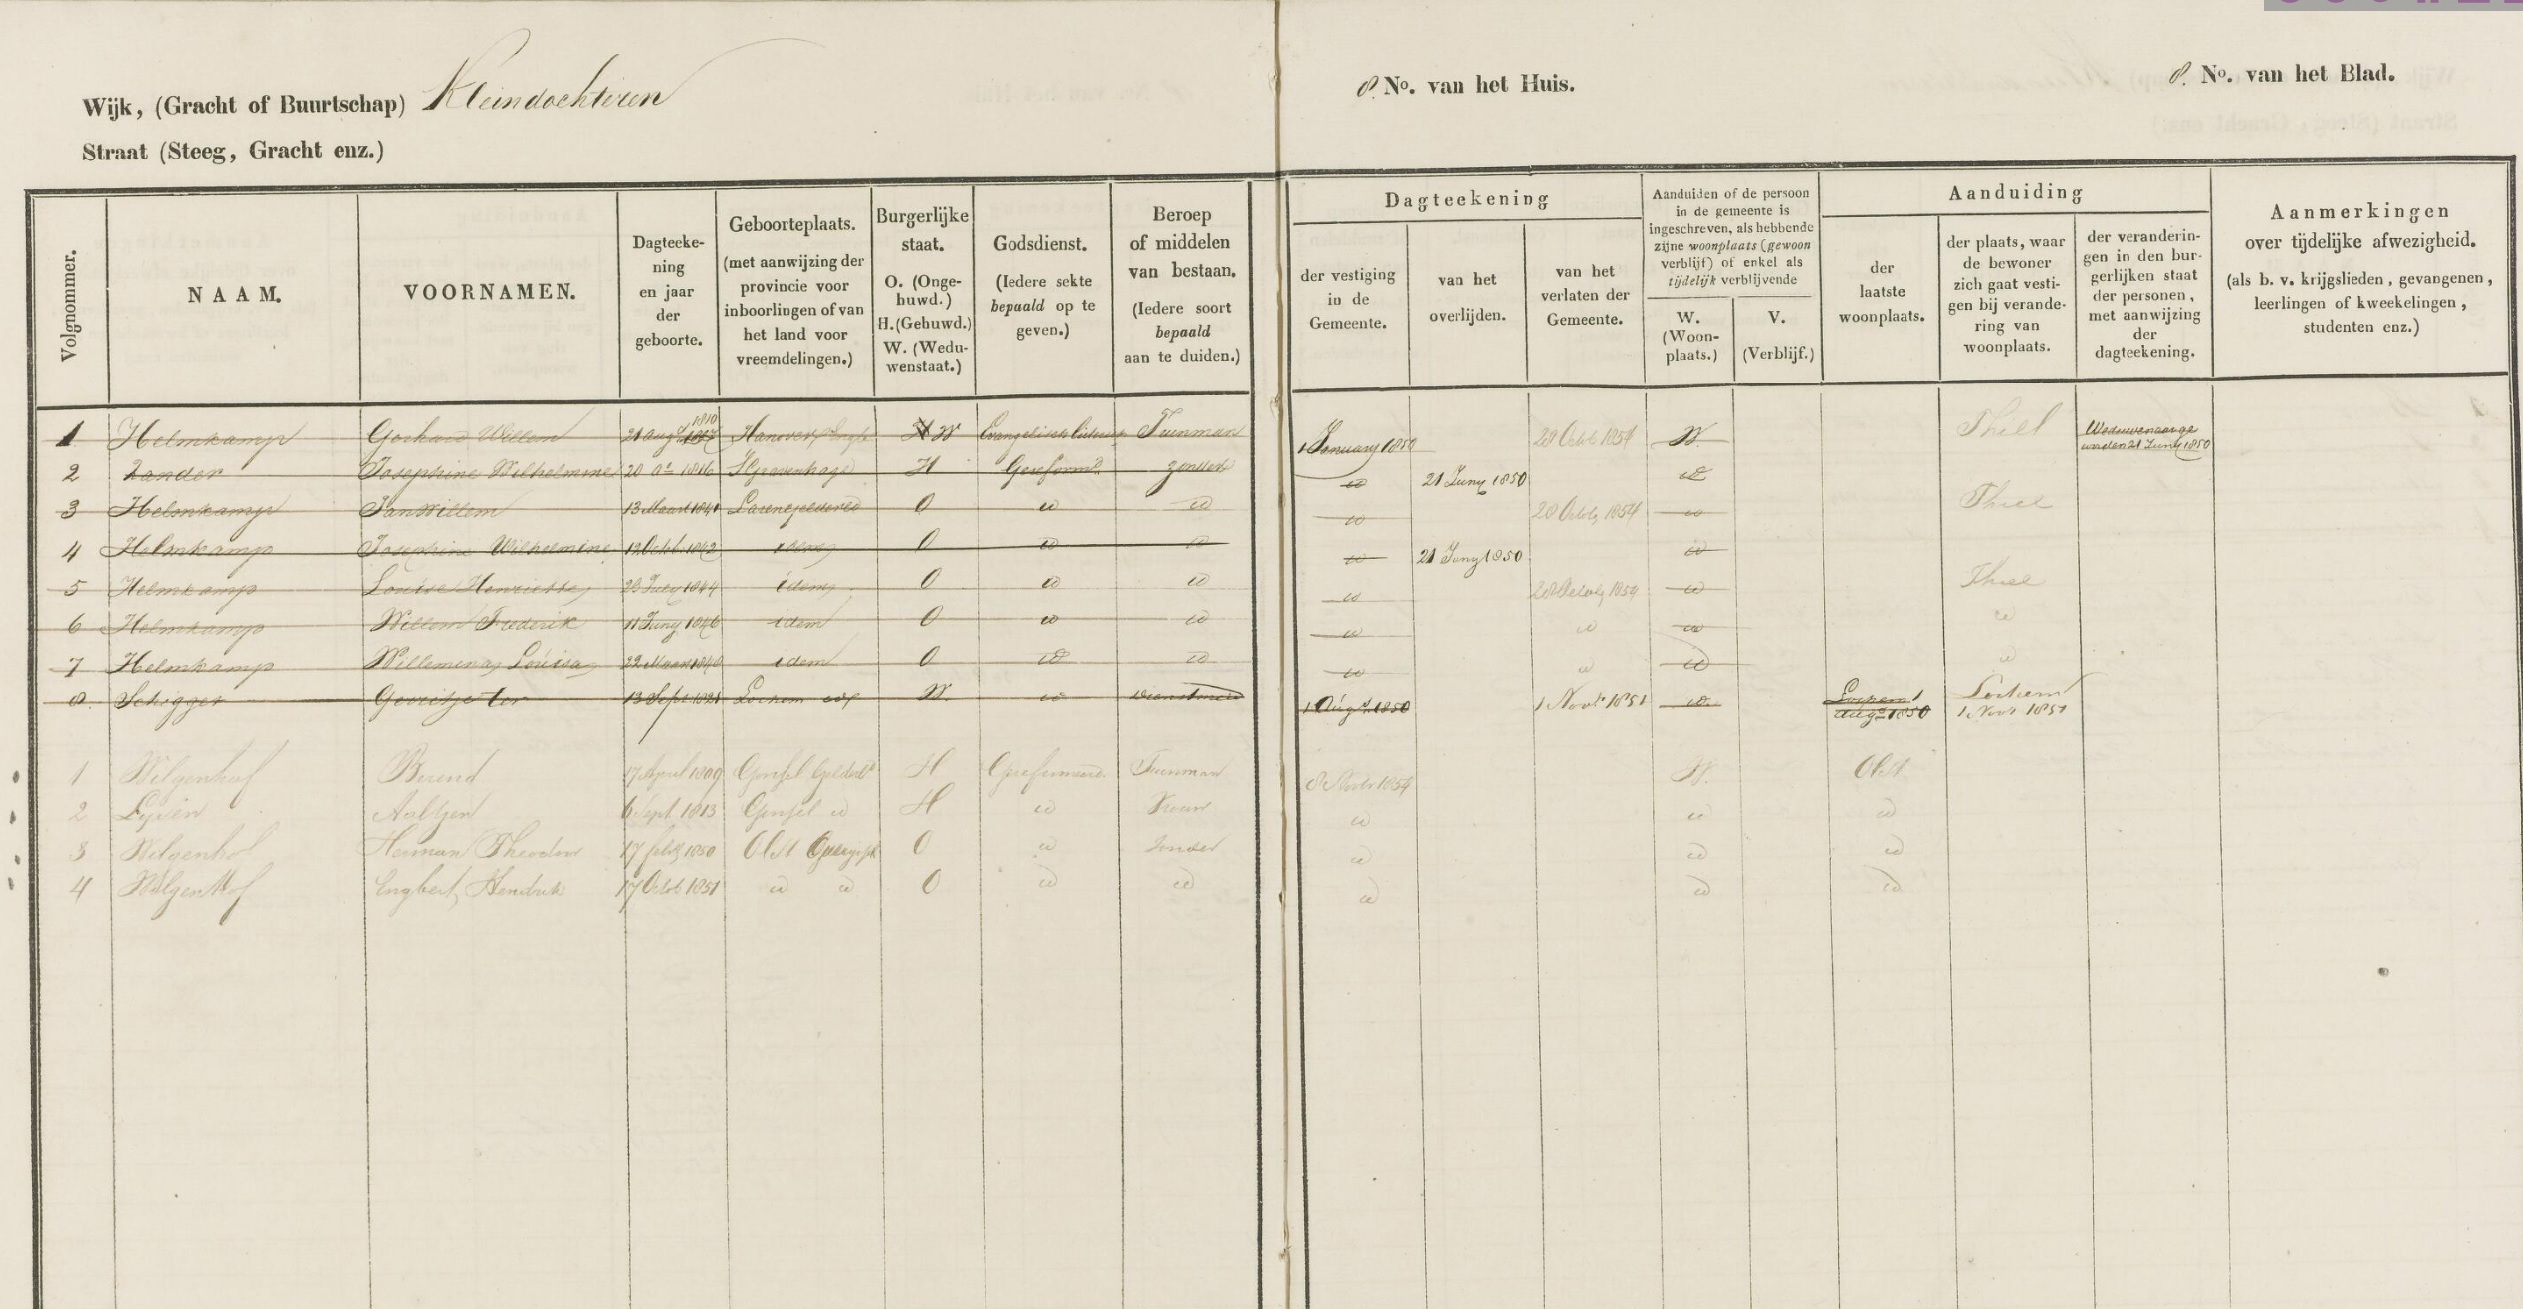 Wijk, (Gracht of Buurtschap) Kleindochteren
8. No. van het Huis.
8. No. van het Blad.
Straat (Steeg, Gracht enz.)
Volgnommer.
NAAM.
VOORNAMEN.
Dagteeke-
ning
en jaar
der
geboorte.
Geboorteplaats.
(met aanwijzing der
provincie voor
inboorlingen of van
het land voor
vreemdelingen.)
Burgerlijke
staat.
O. (Onge-
huwd.)
H. (Gehuwd.)
W. (Wedu-
wenstaat.)
Godsdienst.
(Iedere sekte
bepaald op te
geven.)
Beroep
of middelen
van bestaan.
(Iedere soort
bepaald
aan te duiden.)
Dagteekening
der vestiging
in de
Gemeente.
van het
overlijden.
van het
verlaten der
Gemeente.
Aanduiden of de persoon
in de gemeente is
ingeschreven, als hebbende
zijne woonplaats (gewoon
verblijf) of enkel als
tijdelijk verblijvende
W.
(Woon-
plaats.)
V.
(Verblijf.)
Aanduiding
der
laatste
woonplaats.
der plaats, waar
de bewoner
zich gaat vesti-
gen bij verande-
ring van
woonplaats.
der veranderin-
gen in den bur-
gerlijken staat
der personen,
met aanwijzing
der
dagteekening.
Aanmerkingen
over tijdelijke afwezigheid.
(als b. v. krijgslieden, gevangenen,
leerlingen of kweekelingen,
studenten enz.)
1 Helmkamp Gerhard Willem 21 Aug 1810 Hanover H W Evangelisch Tuinman 1 January 1850 28 Octob 1854 W. Thiel Weduwenaar ge
worden 21 Juny 1850
2 Zander Josephine Wilhelmine 20 1816 S'Gravenhage H Gereform zonder id 21 Juny 1850 id
3 Helmkamp Jan Willem 13 Maart 1841 Laren O id id id 28 Octob 1854 id Thiel
4 Helmkamp Josephine Wilhelmine 12 Octob 1842 idem O id id id 21 Juny 1850 id
5 Helmkamp Louise Henriette 1844 idem O id id id 28 Octob 1854 id Thiel
6 Helmkamp Willem Frederik 11 Juny 1846 idem O id id id id id id
7 Helmkamp Willemina Louisa 22 Maart idem O id id id id id id
8. Schigger Gerritje ter 13 Sept 1821 Lochem W. id dienstmeid 1 Aug 1850 1 Nov 1851 id Lochem 1
Aug 1850 Lochem
1 Nov 1851
1 Wilgenhof Berend 17 April 1809 Gorssel H Gereformeerd Tuinman 8 Nov 1854 W. Olst
2 Aaltjen 6 Sept 1813 Gorssel id H id Vrouw id id id
3 Wilgenhof Herman Theodoor 17 feb 1850 Olst O id zonder id id id
4 Wilgenhof Engbert Hendrik 17 Octob 1851 id id O id id id id id